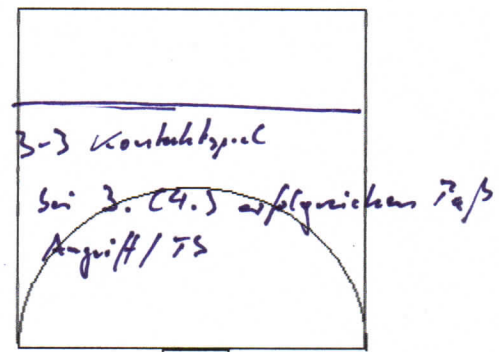 3-3 Kontaktspiel
bei 3. (4.) erfolgreichen Paß
Angriff / TS